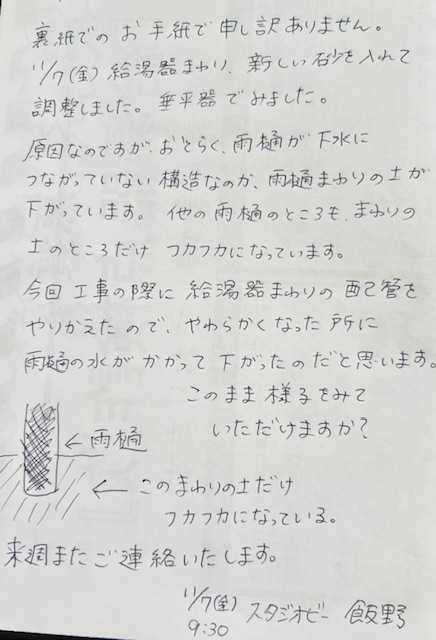 裏紙でのお手紙で申し訳ありません。
11/7(金) 給湯器まわり、新しい砂を入れて
調整しました。垂平器でみました。
原因なのですが、おそらく、雨樋が下水に
つながっていない構造なのか、雨樋まわりの土が
下がっています。他の雨樋のところも、まわりの
土のところだけ フカフカになっています。
今回 工事の際に 給湯器まわりの 配管を
やりかえたので、やわらかくなった所に
雨樋の水が かかって 下がったのだと思います。
このまま様子をみて
いただけますか?
← 雨樋
← このまわりの土だけ
フカフカになっている。
来週またご連絡いたします。
11/7(金) スタジオビー 飯野
9:30